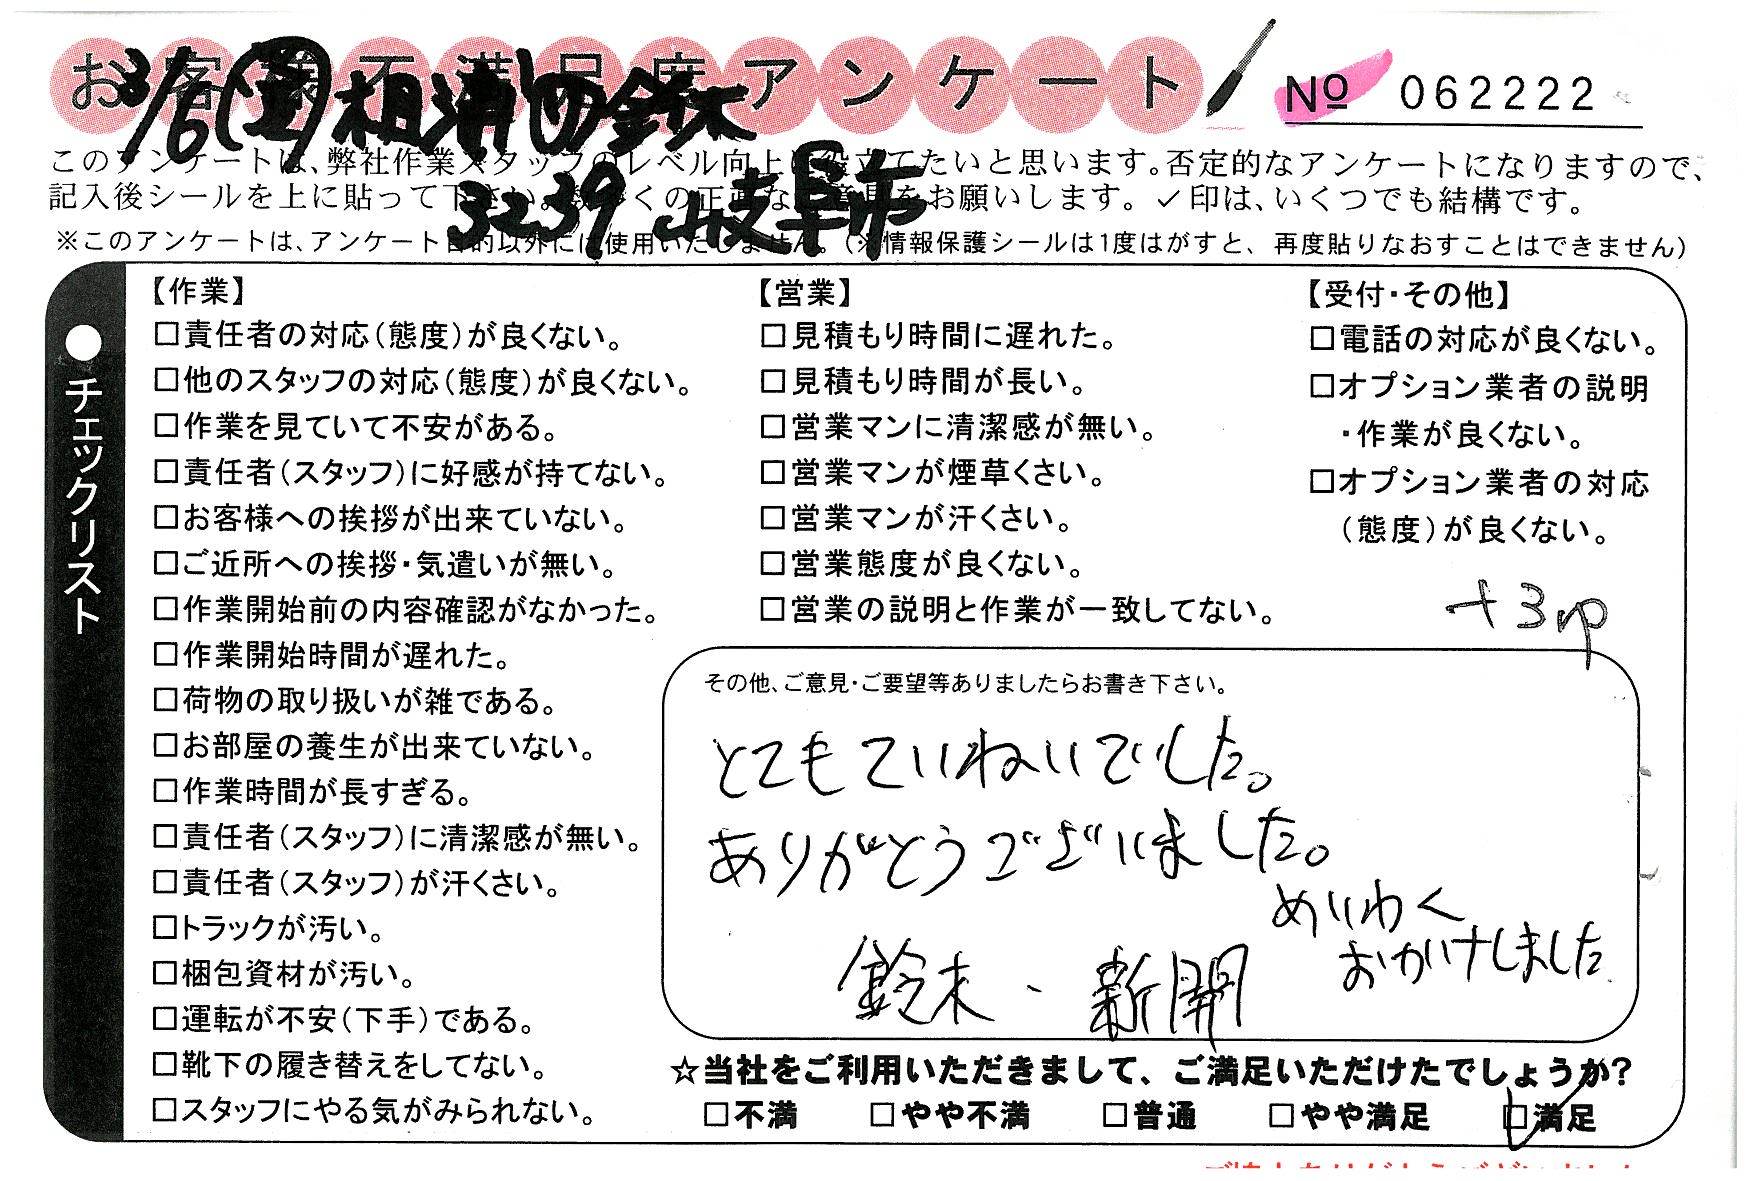 お客様不満足度アンケート
No 062222
3/6(金)相浦 鈴木
3239 岐阜市
このアンケートは、弊社作業スタッフのレベル向上に役立てたいと思います。否定的なアンケートになりますので、
記入後シールを上に貼って下さい。数多くの正直なご意見をお願いします。✓印は、いくつでも結構です。
※このアンケートは、アンケート目的以外には使用いたしません。(※情報保護シールは1度はがすと、再度貼りなおすことはできません)
●チェックリスト
【作業】
□責任者の対応(態度)が良くない。
□他のスタッフの対応(態度)が良くない。
□作業を見ていて不安がある。
□責任者(スタッフ)に好感が持てない。
□お客様への挨拶が出来ていない。
□ご近所への挨拶・気遣いが無い。
□作業開始前の内容確認がなかった。
□作業開始時間が遅れた。
□荷物の取り扱いが雑である。
□お部屋の養生が出来ていない。
□作業時間が長すぎる。
□責任者(スタッフ)に清潔感が無い。
□責任者(スタッフ)が汗くさい。
□トラックが汚い。
□梱包資材が汚い。
□運転が不安(下手)である。
□靴下の履き替えをしてない。
□スタッフにやる気がみられない。
【営業】
□見積もり時間に遅れた。
□見積もり時間が長い。
□営業マンに清潔感が無い。
□営業マンが煙草くさい。
□営業マンが汗くさい。
□営業態度が良くない。
□営業の説明と作業が一致してない。
【受付・その他】
□電話の対応が良くない。
□オプション業者の説明
・作業が良くない。
□オプション業者の対応
(態度)が良くない。
+3rp
その他、ご意見・ご要望等ありましたらお書き下さい。
とてもていねいでした。
ありがとうございました。
めいわく
おかけしました
鈴木・新開
☆当社をご利用いただきまして、ご満足いただけたでしょうか?
□不満 □やや不満 □普通 □やや満足 ☑満足